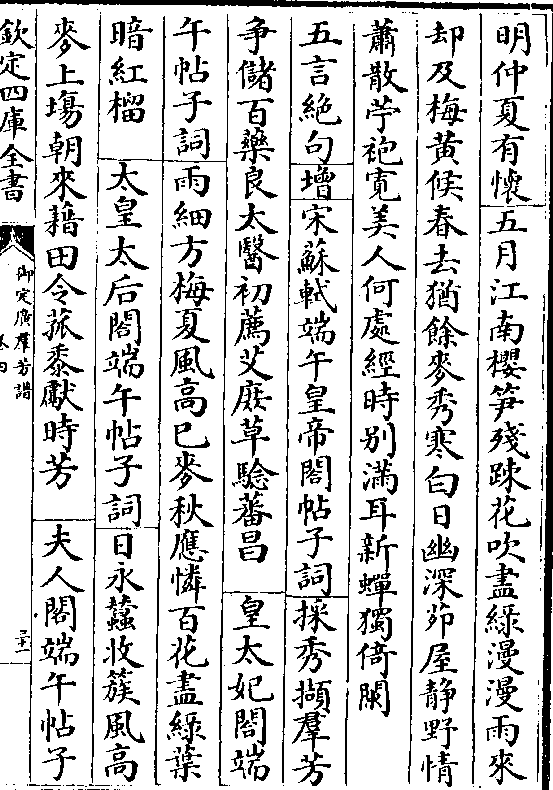 明仲夏有懷五月江南櫻笋殘踈花吹盡綠漫漫雨來
却及梅黄候春去猶餘麥秀寒白日幽深茆屋静野情
蕭散苧袍寛美人何處經時别滿耳新蟬獨倚闌
五言絶句增宋蘇軾端午皇帝閣帖子詞採秀擷羣芳
争儲百藥良太醫初薦艾庶草驗蕃昌 皇太妃閣端
午帖子詞雨細方梅夏風高已麥秋應憐百花盡綠葉
暗紅榴 太皇太后閣端午帖子詞日永蠶收簇風高
麥上塲朝來藉田令菰黍獻時芳 夫人閣端午帖子
欽定四庫全書
御定廣羣芳譜